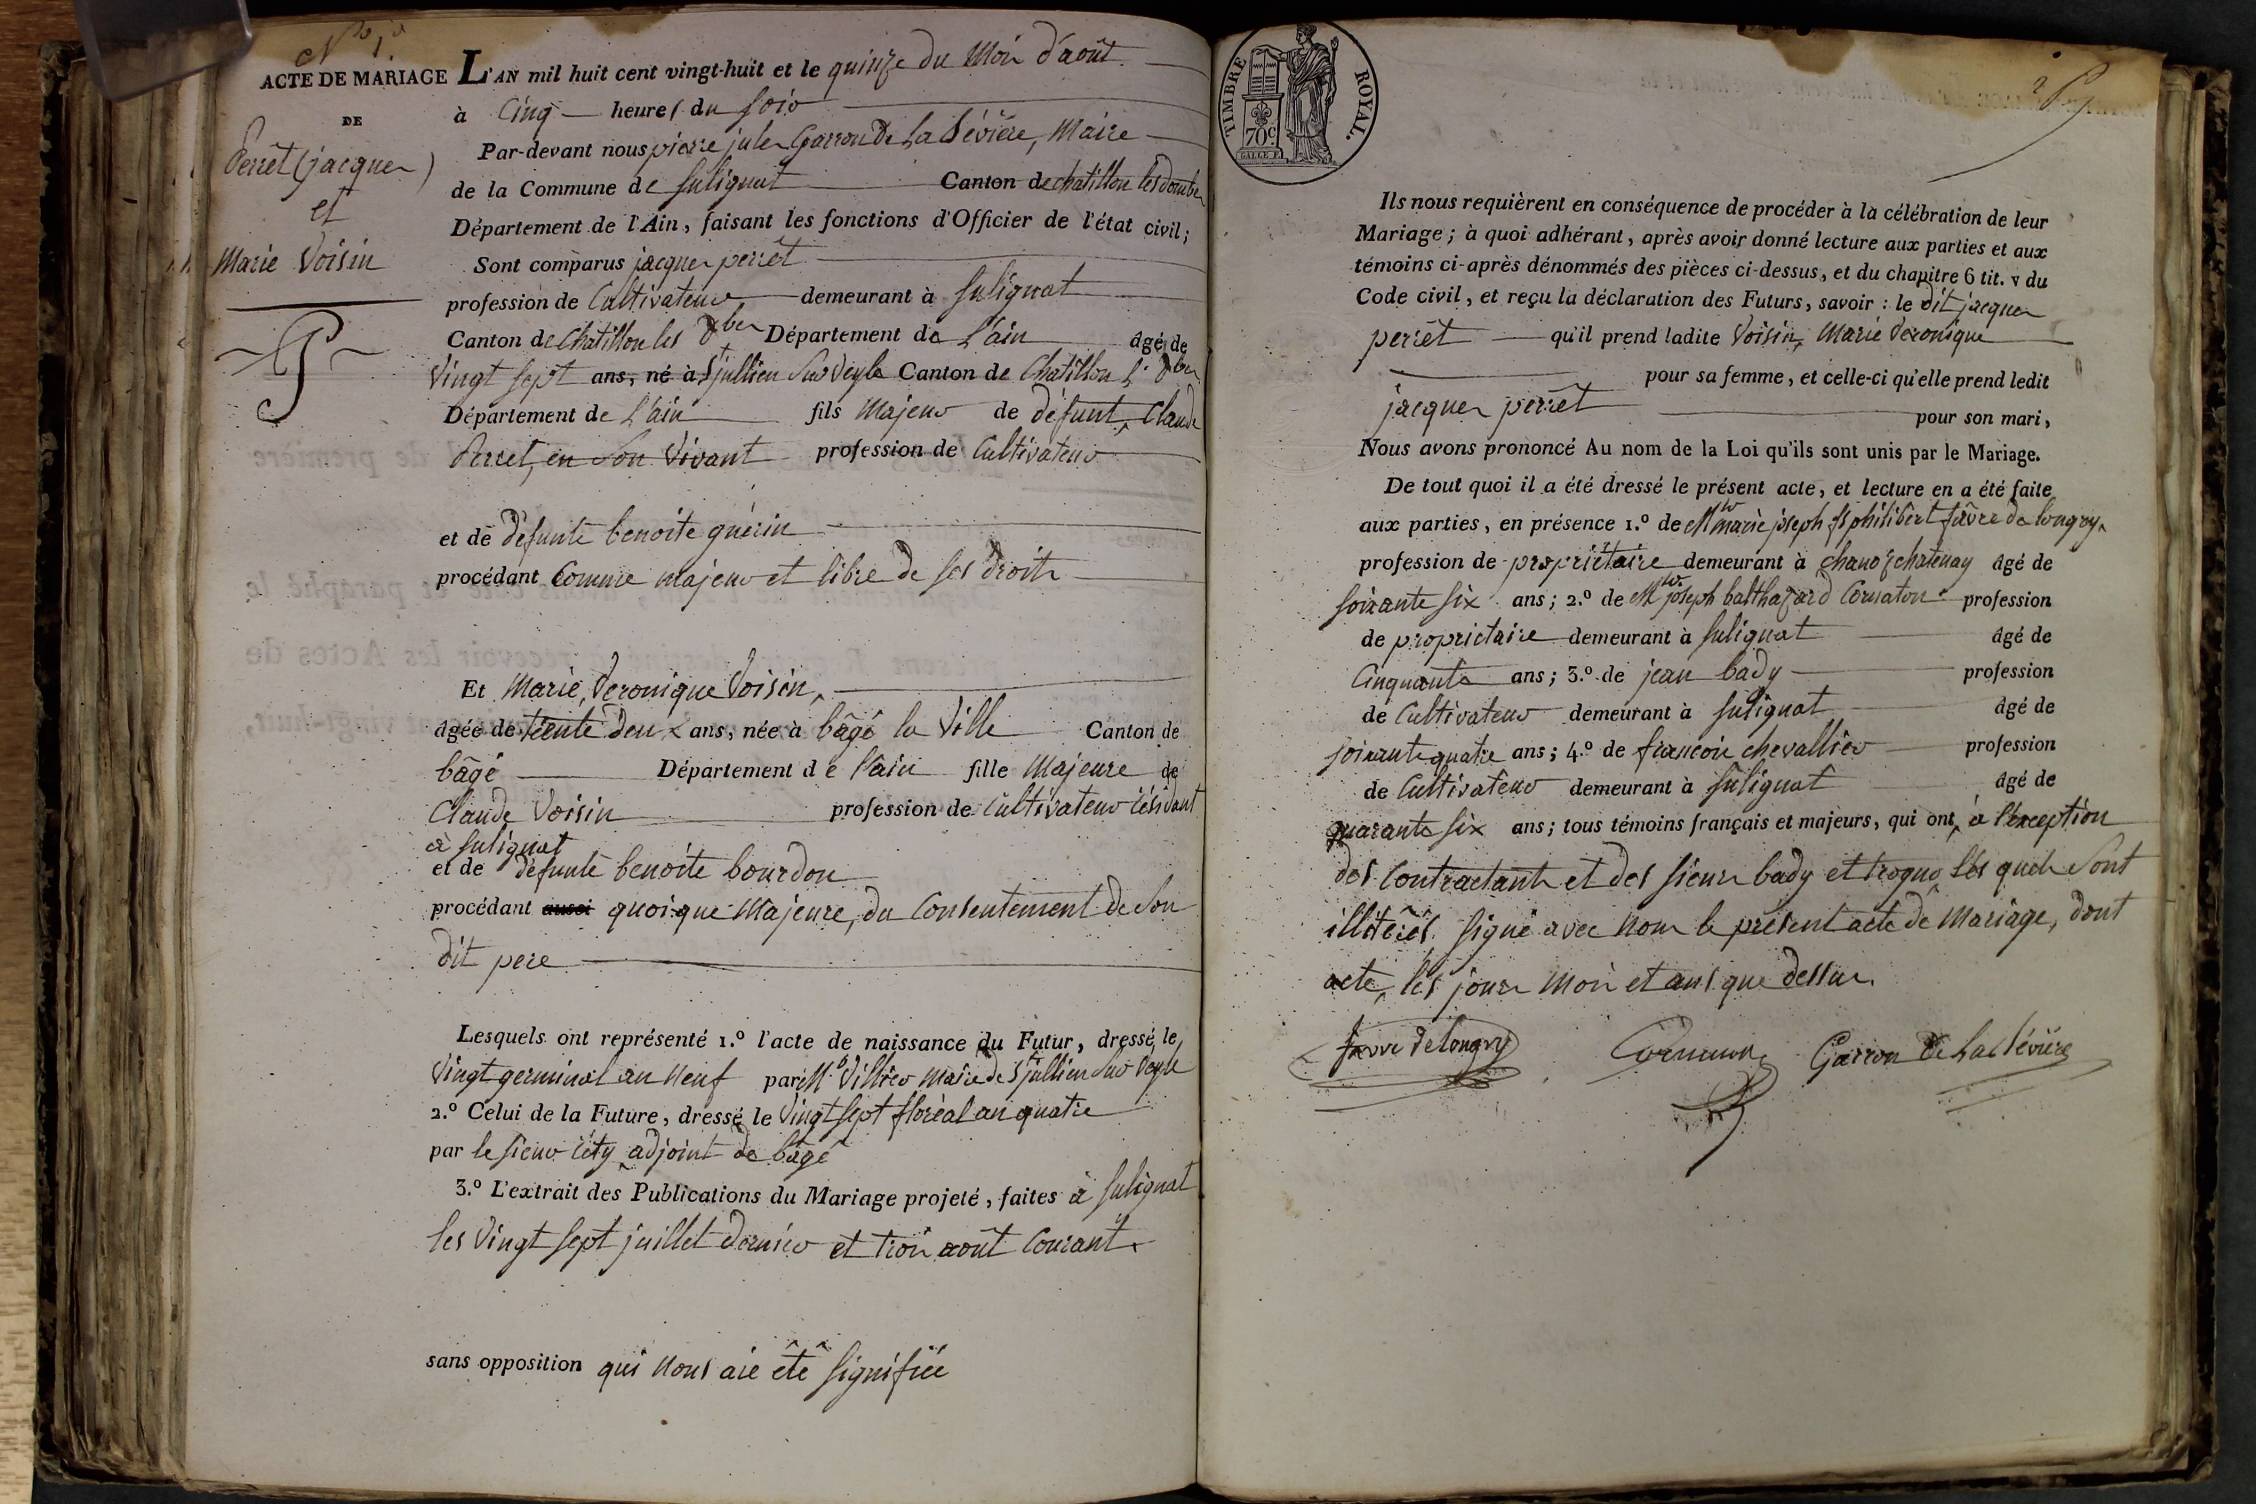 N.º 1.º
ACTE DE MARIAGE
DE
Perrêt (jacques)
et
Marie Voisin
L'AN mil huit cent vingt-huit et le quinze du Mois d'août
à Cinq heures du soir
Par-devant nous pierre jules Garron De La Bévière, Maire
de la Commune de Sulignat Canton de chatillon les dombes
Département de l'Ain, faisant les fonctions d'Officier de l'état civil;
Sont comparus jacques perrêt
profession de Cultivateur, demeurant à Sulignat
Canton de Chatillon les Dbes Département de L'ain âgé de
Vingt sept ans, né à St jullien Sur Veyle Canton de Chatillon l. Dbes
Département de L'ain fils Majeur de défunt, Claude
Perret, en Son Vivant profession de Cultivateur
et de défunte benoite guérin
procédant Comme majeur et libre de ses droits
Et Marie, Veronique Voisin,
âgée de trente deux ans, née à bâgé la Ville Canton de
bâgé Département de l'ain fille Majeure de
Claude Voisin profession de Cultivateur résidant
à Sulignat
et de défunte benoite bourdon
procédant aussi quoique Majeure, du Consentement de Son
dit pere
Lesquels ont représenté 1.º l'acte de naissance du Futur, dressé le
Vingt germinal an neuf par M.r Villier maire de St jullien Sur Veyle
2.º Celui de la Future, dressé le Vingt sept floréal an quatre
par le sieur adjoint de bâgé
3.º L'extrait des Publications du Mariage projeté, faites à Sulignat
les Vingt sept juillet dernier et trois août Courant.
sans opposition qui nous aie été signifiée
TIMBRE ROYAL.
70 c.
Ils nous requièrent en conséquence de procéder à la célébration de leur
Mariage; à quoi adhérant, après avoir donné lecture aux parties et aux
témoins ci-après dénommés des pièces ci-dessus, et du chapitre 6 tit. v du
Code civil, et reçu la déclaration des Futurs, savoir: le dit jacques
perrêt qu'il prend ladite Voisin, Marie Veronique
pour sa femme, et celle-ci qu'elle prend ledit
jacques perrêt pour son mari,
Nous avons prononcé Au nom de la Loi qu'ils sont unis par le Mariage.
De tout quoi il a été dressé le présent acte, et lecture en a été faite
aux parties, en présence 1.º de Mr marie joseph fs philibert favre de longry,
profession de propriétaire demeurant à chanoz chatenay âgé de
soixante six ans; 2.º de Mr joseph balthazard Cornaton profession
de propriétaire demeurant à Sulignat âgé de
Cinquante ans; 3.º de jean bady profession
de Cultivateur demeurant à Sulignat âgé de
soixante quatre ans; 4.º de francois chevallier profession
de Cultivateur demeurant à Sulignat âgé de
quarante six ans; tous témoins français et majeurs, qui ont, à l'exception
des Contractants et des sieurs bady et les quels Sont
illitérés, signé avec nous le présent acte de Mariage, dont
acte, les jours mois et ans que dessus.
favre de longry Cornaton Garron De La Bévière